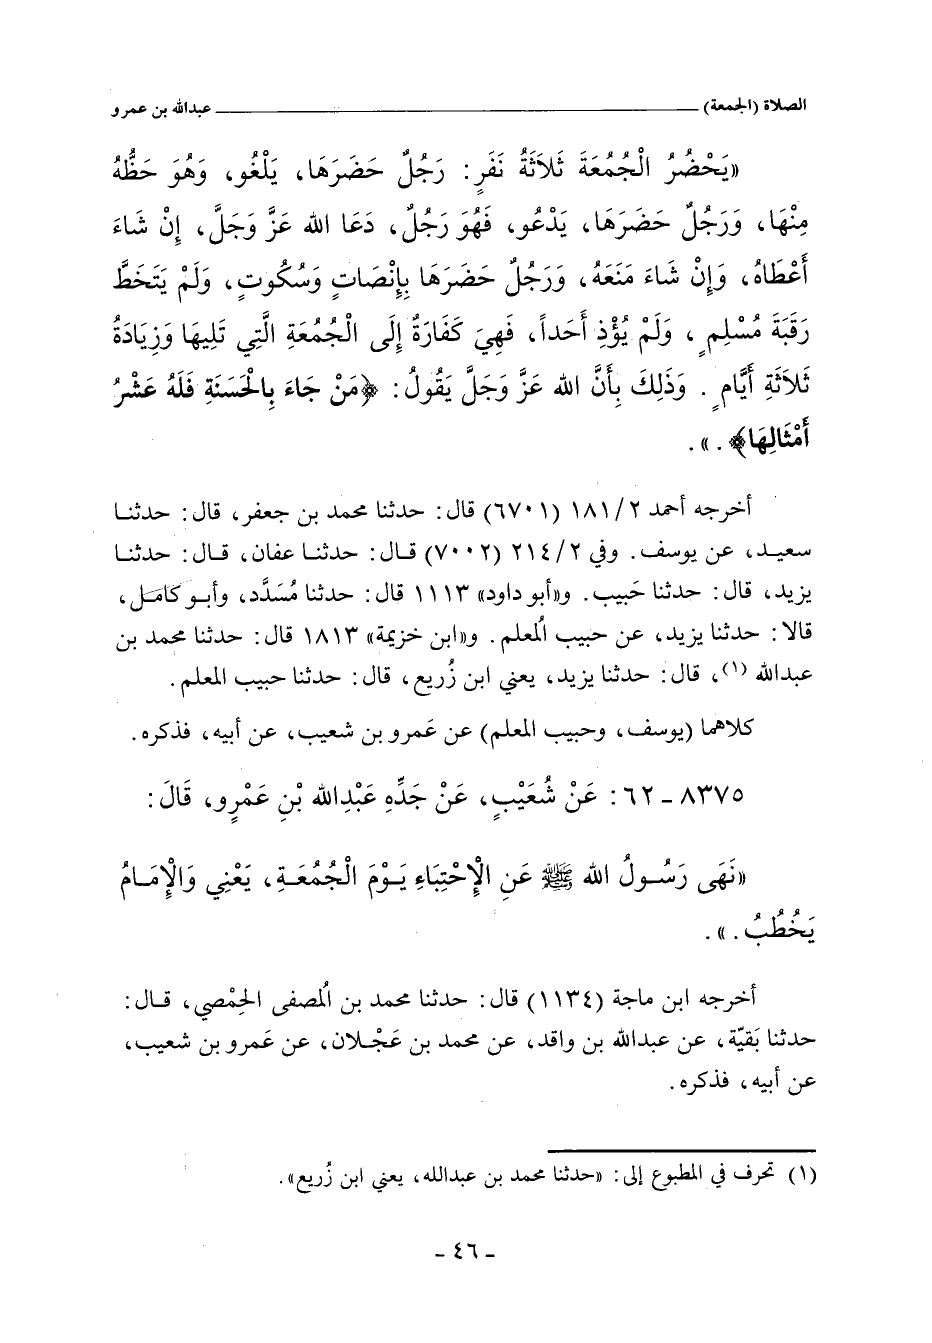 الصلاة (الجمعة) عبدالله بن عمرو
«يَحْضُرُ الْجُمُعَةَ ثَلَاثَةُ نَفَرٍ: رَجُلٌ حَضَرَهَا، يَلْغُو، وَهُوَ حَظُّهُ
مِنْهَا، وَرَجُلٌ حَضَرَهَا، يَدْعُو، فَهُوَ رَجُلٌ، دَعَا الله عَزَّ وَجَلَّ، إِنْ شَاءَ
أَعْطَاهُ، وَإِنْ شَاءَ مَنَعَهُ، وَرَجُلٌ حَضَرَهَا بِإِنْصَاتٍ وَسُكُوتٍ، وَلَمْ يَتَخَطَّ
رَقَبَةَ مُسْلِمٍ، وَلَمْ يُؤْذِ أَحَداً، فَهِيَ كَفَارَةٌ إِلَى الْجُمُعَةِ الَّتِي تَلِيهَا وَزِيَادَةُ
ثَلَاثَةِ أَيَّامٍ. وَذَلِكَ بِأَنَّ الله عَزَّ وَجَلَّ يَقُولُ: ﴿مَنْ جَاءَ بِالْحَسَنَةِ فَلَهُ عَشْرُ
أَمْثَالِهَا﴾.».
أخرجه أحمد ٢/١٨١ (٦٧٠١) قال: حدثنا محمد بن جعفر، قال: حدثنا
سعيد، عن يوسف. وفي ٢/٢١٤ (٧٠٠٢) قال: حدثنا عفان، قال: حدثنا
يزيد، قال: حدثنا حَبيب. و«أبو داود» ١١١٣ قال: حدثنا مُسَدَّد، وأبو كامل،
قالا: حدثنا يزيد، عن حبيب المُعلم. و«ابن خزيمة» ١٨١٣ قال: حدثنا محمد بن
عبدالله (١)، قال: حدثنا يزيد، يعني ابن زُريع، قال: حدثنا حبيب المعلم.
كلاهما (يوسف، وحبيب المعلم) عن عَمرو بن شعيب، عن أبيه، فذكره.
٨٣٧٥ - ٦٢: عَنْ شُعَيْبٍ، عَنْ جَدِّهِ عَبْدِالله بْنِ عَمْرٍو، قَالَ:
«نَهَى رَسُولُ الله ﷺ عَنِ الْإِحْتِبَاءِ يَوْمَ الْجُمُعَةِ، يَعْنِي وَالْإِمَامُ
يَخْطُبُ.».
أخرجه ابن ماجة (١١٣٤) قال: حدثنا محمد بن المُصفى الحِمْصي، قال:
حدثنا بَقيّة، عن عبدالله بن واقد، عن محمد بن عَجْلان، عن عَمرو بن شعيب،
عن أبيه، فذكره.
(١) تحرف في المطبوع إلى: «حدثنا محمد بن عبدالله، يعني ابن زُريع».
- ٤٦ -